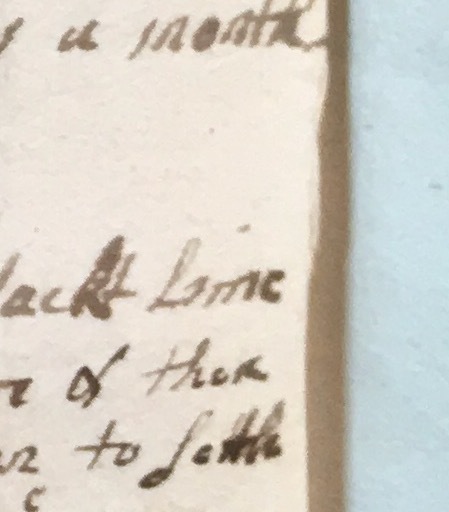 a month
slackt Lime
& then
to settle